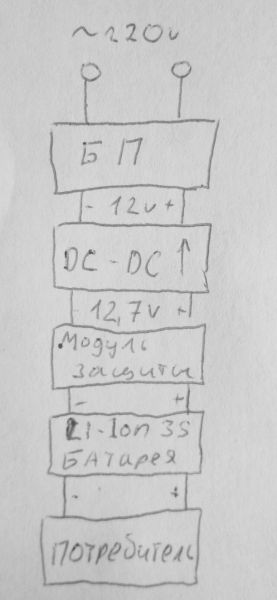 ~220v
БП
- 12v +
DC-DC ↑
- 12,7v +
Модуль
защиты
- +
Li-Ion 3S
БАТАРЕЯ
- +
ПОТРЕБИТЕЛЬ